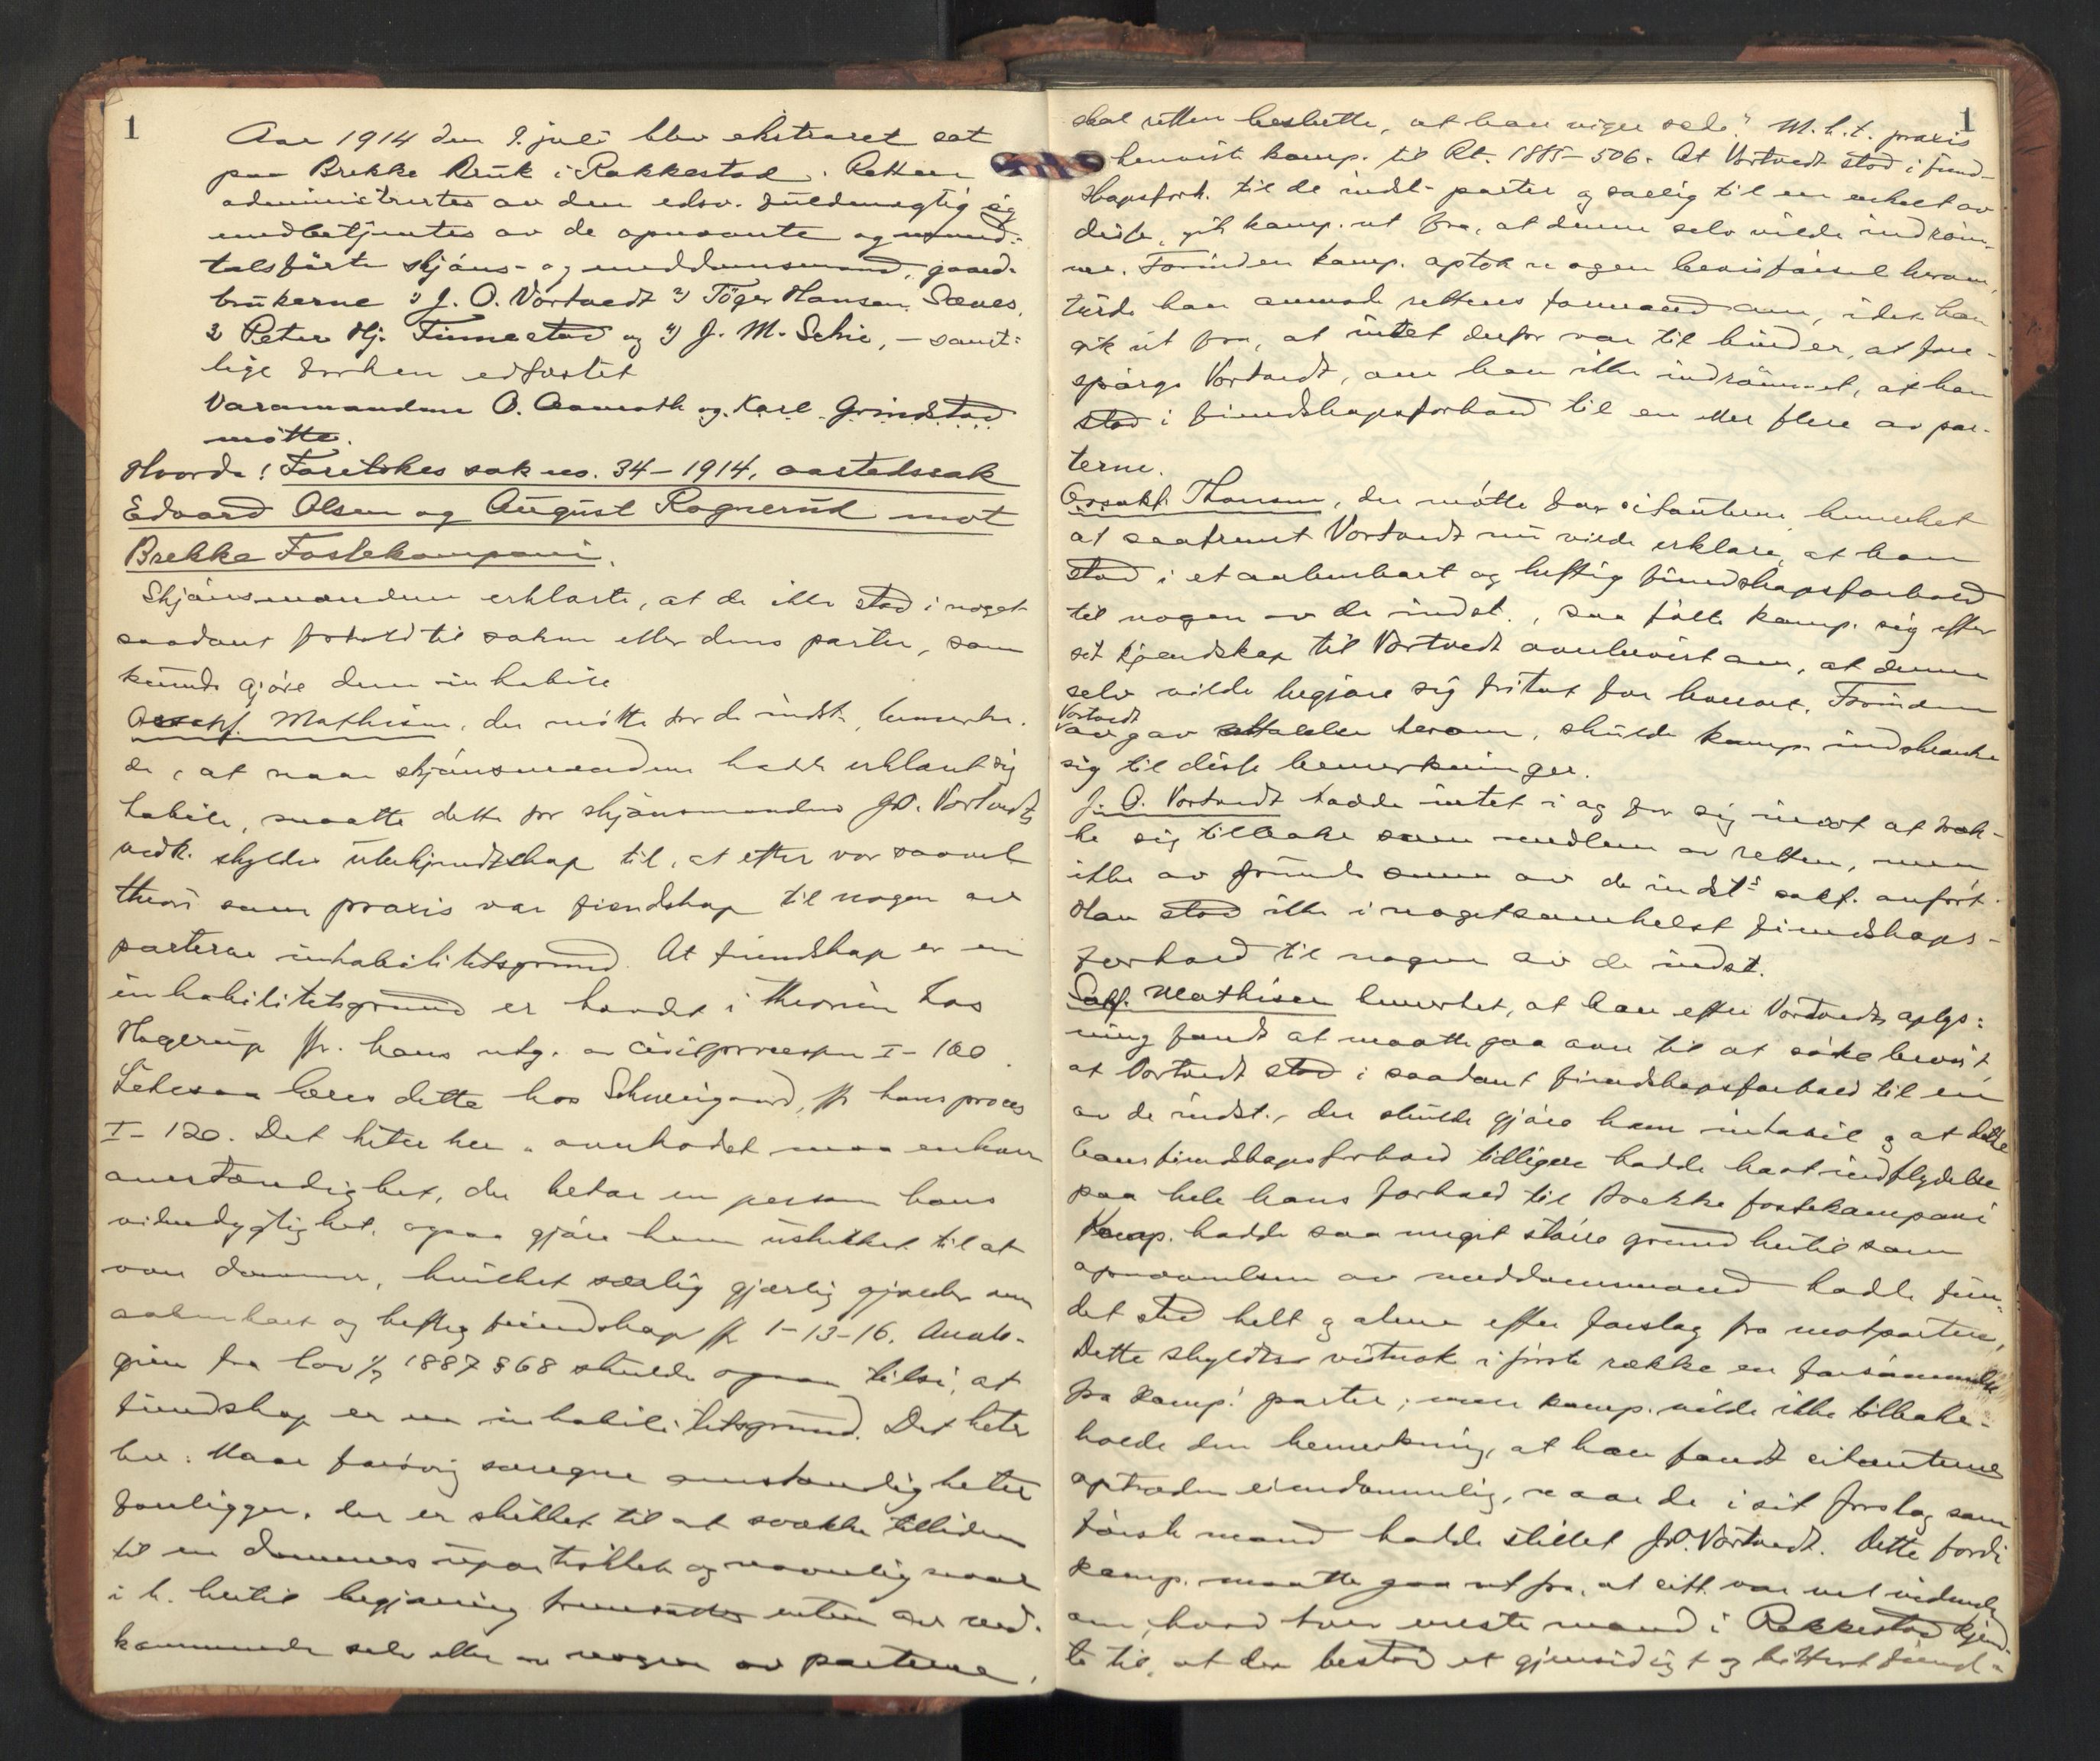 1
Aar 1914 den 9. juli blev ekstraret sat
paa Brekke Bruk i Rakkestad. Retten
administrertes av den edsv. fuldmægtig og
medbetjentes av de opnævnte og mind-
talsførte skjøns- og meddomsmænd, gaard-
brukerne 1) J. O. Vortvedt 2) Töger Hansen Sæves,
3) Peter Hj. Finnestad og 4) J. M. Schie, – samt-
lige forhen edfæstet
Varamændene O. Aamoth og Karl Grindstad
møtte.
Hvorda! Foretokes sak no. 34 – 1914, aastedssak
Edvard Olsen og August Rognerud mot
Brekke Fossekompani.
Skjønsmændene erklærte, at de ikke stod i noget
saadant forhold til saken eller dens parter, som
kunde gjøre dem inhabile
Orsakf. Mathisen, der møtte for de indst., bemerke-
de, at naar skjønsmændene hadde erklært sig
habile, maatte dette for skjønsmanden J.O. Vortvedts
vedk. skyldes ubekjendtskap til, at efter vor saavel
theori som praxis var fiendskap til nogen av
parterne inhabilitetsgrund. At fiendskap er en
inhabilitetsgrund er hævdet i theorien hos
Hagerup jfr. hans utg. av civilprocessen I – 100.
Likesaa læres dette hos Schweigaard, jfr hans proces
I – 120. Det heter her "overhodet maa enhver
omstændighet, der betar en person hans
vidnedygtighet, ogsaa gjøre ham uskikket til at
være dommer, hvilket særlig gjælder om
aabenbart og heftig fiendskap jfr 1-13-16. Analo-
gien fra lov 1/7 1887 § 68 skulde ogsaa tilsi, at
fiendskap er en inhabilitetsgrund. Det heter
her: Naar forøvrig særegne omstændigheter
foreligger, der er skikket til at svække tilliden
til en dommers upartiskhet og navnlig naar
i h. hertil begjæring fremsættes enten av ved-
kommende selv eller av nogen av parterne,
1
skal retten beslutte, at han viger sæde." M.h.t. praxis
henviste komp. til Rt. 1885 – 506. At Vortvedt stod i fiend-
skapsforh. til de indst. parter og særlig til en enkelt av
disse, gik komp. ut fra, at denne selv vilde indrøm-
me. Forinden komp. optok nogen bevisførsel herom,
turde han anmode rettens formand om, idet han
gik ut fra, at intet derfor var til hinder, at fore-
spørge Vortvedt, om han ikke indrømmet, at han
stod i fiendskapsforhold til en eller flere av par-
terne.
Orsakf. Thoresen, der møtte for citanterne bemerket
at saafremt Vortvedt nu vilde erklære, at han
stod i et aabenbart og heftig fiendskapsforhold
til nogen av de indst., saa følte komp. sig efter
sit kjendskap til Vortvedt overbevist om, at denne
selv vilde begjære sig fritat for hvervet. Forinden
Vortvedt
avgav uttalelse herom, skulde komp. indskrænke
sig til disse bemerkninger.
J. O. Vortvedt hadde intet i og for sig imot at træk-
ke sig tilbake som medlem av retten, men
ikke av grunde som av de indst.s sakf. anført.
Han stod ikke i nogetsomhelst fiendskaps-
forhold til nogen av de indst.
Sakf. Mathisen bemerket, at han efter Vortvedts oplys-
ning fandt at maatte gaa over til at søke bevist,
at Vortvedt stod i saadant fiendskapsforhold til en
av de indst., der skulde gjøre ham inhabil og at dette
hans fiendskapsforhold tidligere hadde havt indflydelse
paa hele hans forhold til Brekke fossekompani
Komp. hadde saa meget større grund hertil som
opnævnelsen av meddomsmænd hadde fun-
det sted helt og alene efter forslag fra motparten,
Dette skyldtes vistnok i første række en forsømmelse
fra komp.' parter; men komp. vilde ikke tilbake-
holde den bemerkning, at han fandt citanternes
optræden eiendommelig, naar de i sit forslag som
første mand hadde stillet J.O. Vortvedt. Dette fordi
komp. maatte gaa ut fra, at citt. var vel vidende
om, hvad hver eneste mand i Rakkestad kjend-
te til, at der bestod et gjensidigt og bittert fiend-